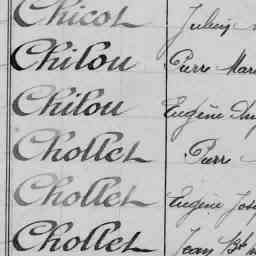 Chicot Julien
Chilou Pierre Marie
Chilou Eugène
Chollet Pierre
Chollet Eugène Jose
Chollet Jean Bte